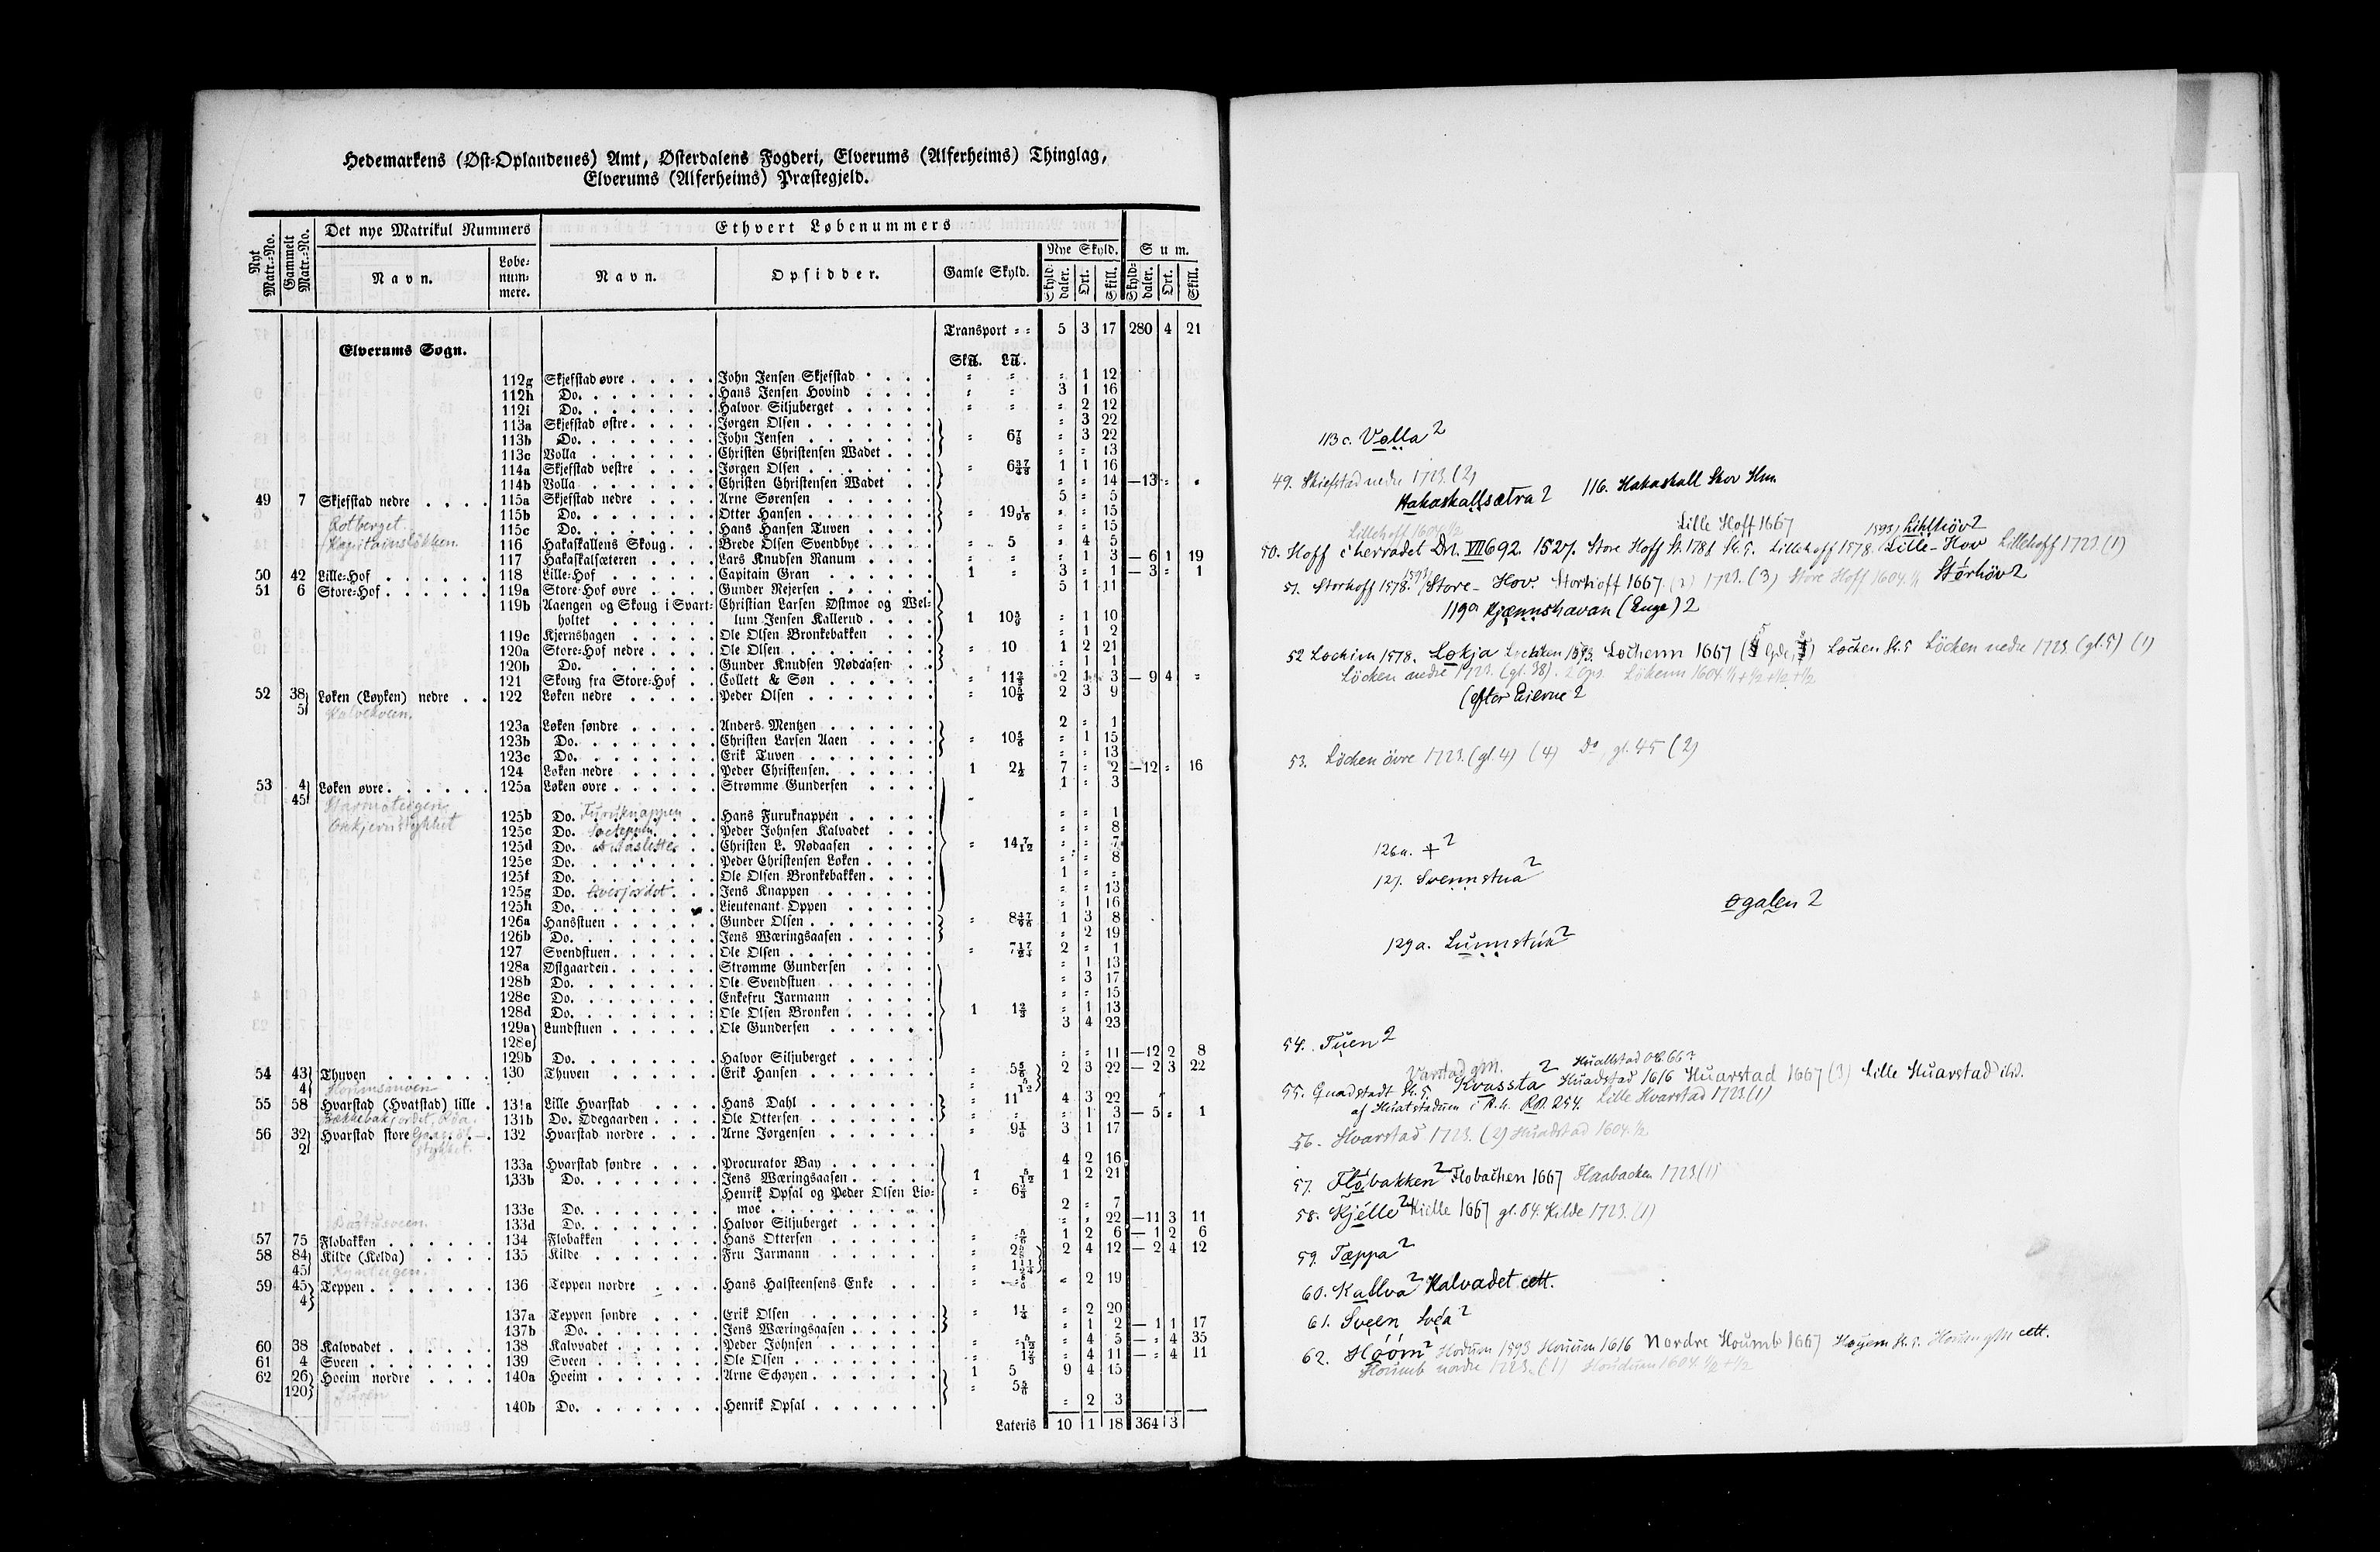 Hedemarkens (Øst-Oplandenes) Amt, Østerdalens Fogderi, Elverums (Alferheims) Thinglag,
Elverums (Alferheims) Præstegjeld.
Nyt Matr.-No. Gammelt Matr.-No. Det nye Matrikul Nummers Ethvert Løbenummers
Navn. Løbe-num-mere. Navn. Opsidder. Gamle Skyld. Nye Skyld. Sum.
Skyld-daler. Ort. Skill. Skyld-daler. Ort. Skill.
Transport 5 3 17 280 4 21
Elverums Sogn.
112g Skjefstad øvre John Jensen Skjefstad 1 12
112h Do. Hans Jensen Hovind 3 1 16
112i Do. Halvor Siljuberget 2 12
113a Skjefstad østre Jørgen Olsen 3 22
113b Do. John Jensen 6 7/8 3 22
113c Volla Christen Christensen Wadet 13
114a Skjefstad vestre Jørgen Olsen 6 37/48 1 1 16
114b Volla Christen Christensen Wadet 14 —13
49 7 Skjefstad nedre 115a Skjefstad nedre Arne Sørensen 5 5
115b Do. Otter Hansen 15
115c Do. Hans Hansen Tuven 15
Kapitainsløkken.
116 Hakaskallens Skoug Brede Olsen Svendbye 5 4 5
117 Hakaskalsæteren Lars Knudsen Nanum 1 3 — 6 1 19
50 42 Lille-Hof 118 Lille-Hof Capitain Gran 1 3 1 — 3 1
51 6 Store-Hof 119a Store-Hof øvre Gunder Rejersen 5 1 11
119b Aaengen og Skoug i Svart- Christian Larsen Østmoe og Wel-
holtet lum Jensen Kallerud 1 10 5/9 1 10
119c Kjernshagen Ole Olsen Bronkebakken 1 2
120a Store-Hof nedre Ole Olsen 10 1 2 21
120b Do. Gunder Knudsen Nødaasen 1 1
121 Skoug fra Store-Hof Collett & Søn 2 1 3 — 9 4
52 38 5 Løken (Løyken) nedre 122 Løken nedre Peder Olsen 10 5/6 2 3 9
123a Løken søndre Anders Mentzen 2 1
123b Do. Christen Larsen Aaen 10 5/6 1 15
123c Do. Erik Tuven 13
124 Løken nedre Peder Christensen 1 2 1/2 7 2 —12 16
53 4 45 Løken øvre 125a Løken øvre Strømme Gundersen 1 3
125b Do. Furuknappen Hans Furuknappen 1
125c Do. Peder Johnsen Kalvadet 8
125d Do. Christen L. Nødaasen 14 7/12 7
125e Do. Peder Christensen Løken 8
125f Do. Ole Olsen Bronkebakken 1
125g Do. Jens Knappen 13
125h Do. Lieutenant Oppen 1 16
126a Hansstuen Gunder Olsen 8 47/96 1 3 8
126b Do. Jens Wæringsaasen 2 19
127 Svendstuen Ole Olsen 7 17/24 2 1
128a Østgaarden Strømme Gundersen 1 13
128b Do. Ole Svendstuen 3 17
128c Do. Enkefru Jarmann 15
128d Do. Ole Olsen Bronken 1 1 2/3 1 13
129a Lundstuen Ole Gundersen 3 4 23
128e
129b Do. Halvor Siljuberget 11 —12 2 8
54 43 4 Thuven 130 Thuven Erik Hansen 5 5/6 2 3 22 — 2 3 22
55 58 Hvarstad (Hvatstad) lille 131a Lille Hvarstad Hans Dahl 11 4 3 22
131b Do. Ødegaarden Ole Ottersen 1 3 — 5 1
56 32 2 Hvarstad store 132 Hvarstad nordre Arne Jørgensen 9 1/6 3 1 17
133a Hvarstad søndre Procurator Bay 4 2 16
133b Do. Jens Wæringsaasen 1 5/12 1 2 21
Henrik Opsal og Peder Olsen Lio-
133c Do. moe 2 7
133d Do. Halvor Siljuberget 22 —11 3 11
57 75 Flobakken 134 Flobakken Hans Ottersen 5/6 1 2 6 — 1 2 6
58 84 45 Kilde (Kelda) 135 Kilde Fru Jarmann 2 4 12 — 2 4 12
59 45 4 Teppen 136 Teppen nordre Hans Halsteensens Enke 2 19
137a Teppen søndre Erik Olsen 2 20
137b Do. Jens Wæringsaasen 1 2 — 1 1 17
60 38 Kalvvadet 138 Kalvvadet Peder Johnsen 5/12 4 5 — 4 35
61 4 Sveen 139 Sveen Ole Olsen 4 11 — 4 11
62 26 120 Hoeim nordre 140a Hoeim Arne Schøyen 1 5 9 4 15
5 5/6
140b Do. Henrik Opsal 2 3
Lateris 10 1 18 364 3
113c. Vølla 2
49. Skiefstad nedre 1723. (2)
Hakaskallsætra 2 116. Hakaskall Skov Hm.
Lillehoff 1604. 1/2 Lille Hoff 1667
50. Hoff i herradet Dn. VII 692. 1527. Store Hoff St. 178 Sk. 5. Lillehoff 1578. Lille-Hov Lillehoff 1723. (1)
51. Storhoff 1578. 1593 Store-Hov. Storhoff 1667 1723. (3) Store Hoff 1604. 1/1 Störhöv 2
119a Kjænnshavan (Enge) 2
52 Lochien 1578. Løkja Lockken 1593. Løchenn 1667 Løchen Sk. 5 Löchen nedre 1723. (gl. 5) (1)
Löchen nedre 1723. (gl. 38). Løkenn 1604. 1/1 + 1/2 + 1/2 + 1/2
(efter Eierne 2
53. Löchen övre 1723. (gl. 4) (4) Do, gl. 45 (2)
126a. + 2
127. Svennstua 2
øgalen 2
129a. Lunnstua 2
54. Tuen 2
Varstad glm. 2 Huallstad OE. 66?
55. Quadstadt Sk. 5. Kvassta Huadstad 1616 Huarstad 1667 (3) Lille Huarstad ibid.
af Huatstadum i R.h. RB. 254. Lille Hvarstad 1723. (1)
56. Hvarstad 1723. (2) Huadstad 1604. 1/2
57. Flobakken 2 Flobachen 1667 Flaabacken 1723. (1)
58. Kjélle 2 Kielle 1667 gl. 84. Kilde 1723. (1)
59. Tæppa 2
60. Kallva 2 Kalvadet cett.
61. Sveen Svéa 2
62. Hóóm 2 Hodum 1593 Houum 1616 Nordre Houmb 1667 Høyem Sk. 5. Houm glm cett.
Houmb nordre 1723. (1) Houdum 1604. 1/2 + 1/2